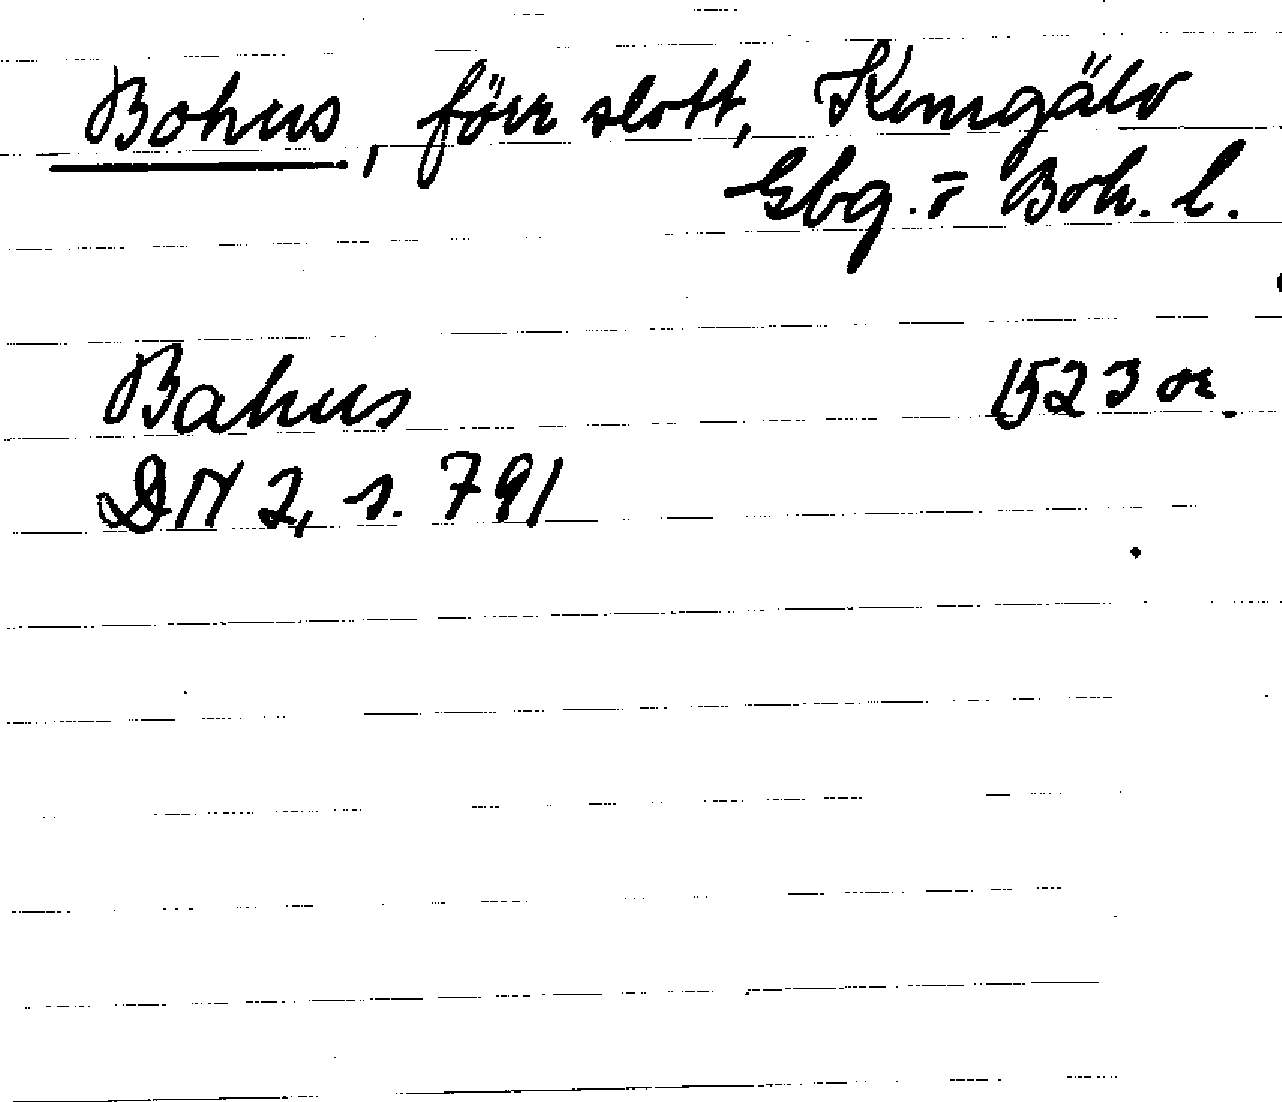 Bohus, förr slott, Kungälv
Gbg. o Boh. l.
Bahus 1523 or.
DN 2, s. 791